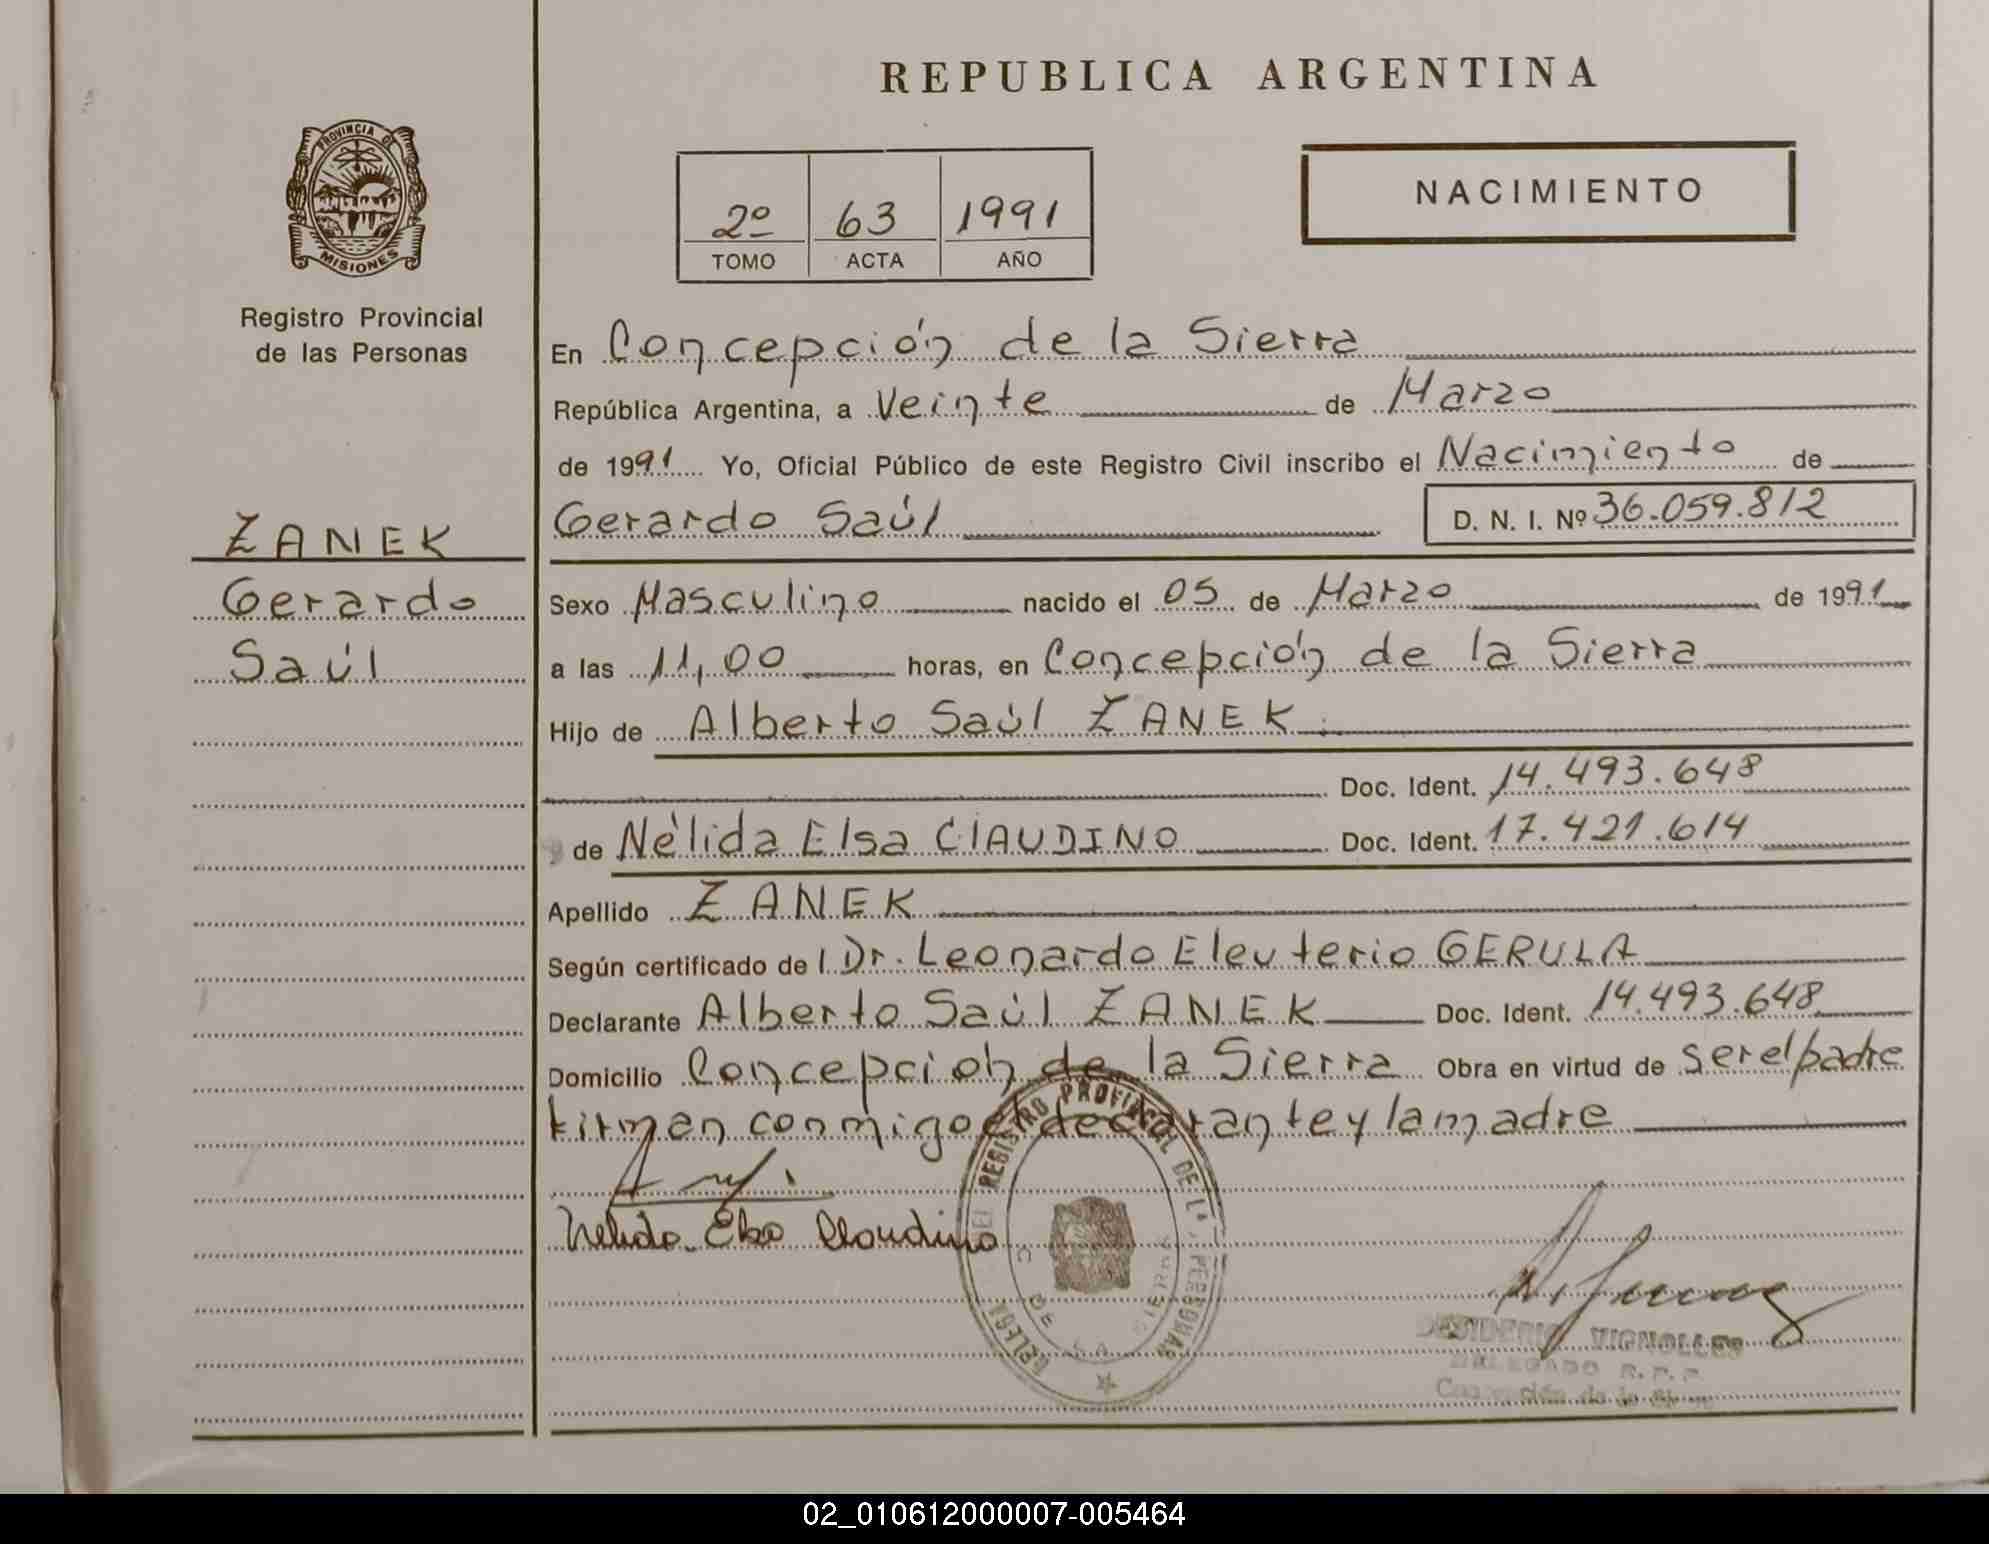 REPUBLICA ARGENTINA
PROVINCIA DE
MISIONES
Registro Provincial
de las Personas
2º 63 1991
TOMO ACTA AÑO
NACIMIENTO
En Concepción de la Sierra
República Argentina, a Veinte de Marzo
de 1991 Yo, Oficial Público de este Registro Civil inscribo el Nacimiento de
Gerardo Saúl D. N. I. Nº 36.059.812
ZANEK
Gerardo
Saúl
Sexo Masculino nacido el 05 de Marzo de 1991
a las 11,00 horas, en Concepción de la Sierra
Hijo de Alberto Saúl ZANEK
Doc. Ident. 14.493.648
de Nélida Elsa ClAUDINO Doc. Ident. 17.421.614
Apellido ZANEK
Según certificado de l Dr. Leonardo Eleuterio GERULA
Declarante Alberto Saúl ZANEK Doc. Ident. 14.493.648
Domicilio Concepción de la Sierra Obra en virtud de ser el padre
firman conmigo el declarante y la madre
Nelida Elsa Claudino
REGISTRO PROVINCIAL DE LAS PERSONAS
DE LA SIERRA
DESIDERIO VIGNOLLES
DELEGADO R. P. P.
Concepción de la Sierra
02_010612000007-005464